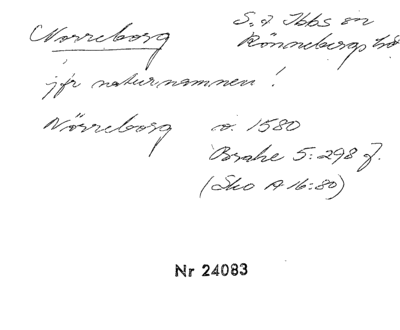 Norreborg S. t Ibbs sn
Rönnebergs hd
jfr naturnamnen!
Nörreborg o. 1580
Brahe 5:298 f.
(Sko A 16:80)
Nr 24083